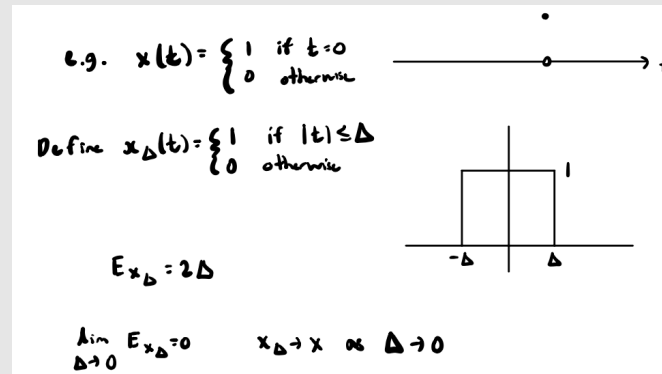 e.g. x(t) = { 1 if t=0
0 otherwise
Define x_Δ(t) = { 1 if |t| ≤ Δ
0 otherwise
1
-Δ Δ
E_{x_Δ} = 2Δ
lim_{Δ→0} E_{x_Δ} = 0 x_Δ → x as Δ → 0